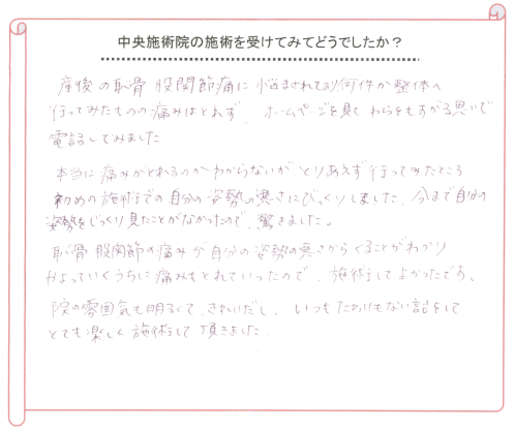 中央施術院の施術を受けてみてどうでしたか？
産後の恥骨 股関節痛に悩まされており何件か整体へ
行ってみたものの痛みはとれず、ホームページを見てわらをもすがる思いで
電話してみました
本当に痛みがとれるのかわからないが、とりあえず行ってみたところ
初めの施術での自分の姿勢の悪さにびっくりしました。今まで自分の
姿勢をじっくり見たことがなかったので、驚きました。
恥骨 股関節の痛みが自分の姿勢の悪さからくることがわかり
かよっていくうちに痛みもとれていったので、施術してよかったです。
院の雰囲気も明るくて、きれいだし、いつもたわいもない話をして
とても楽しく施術して頂きました。